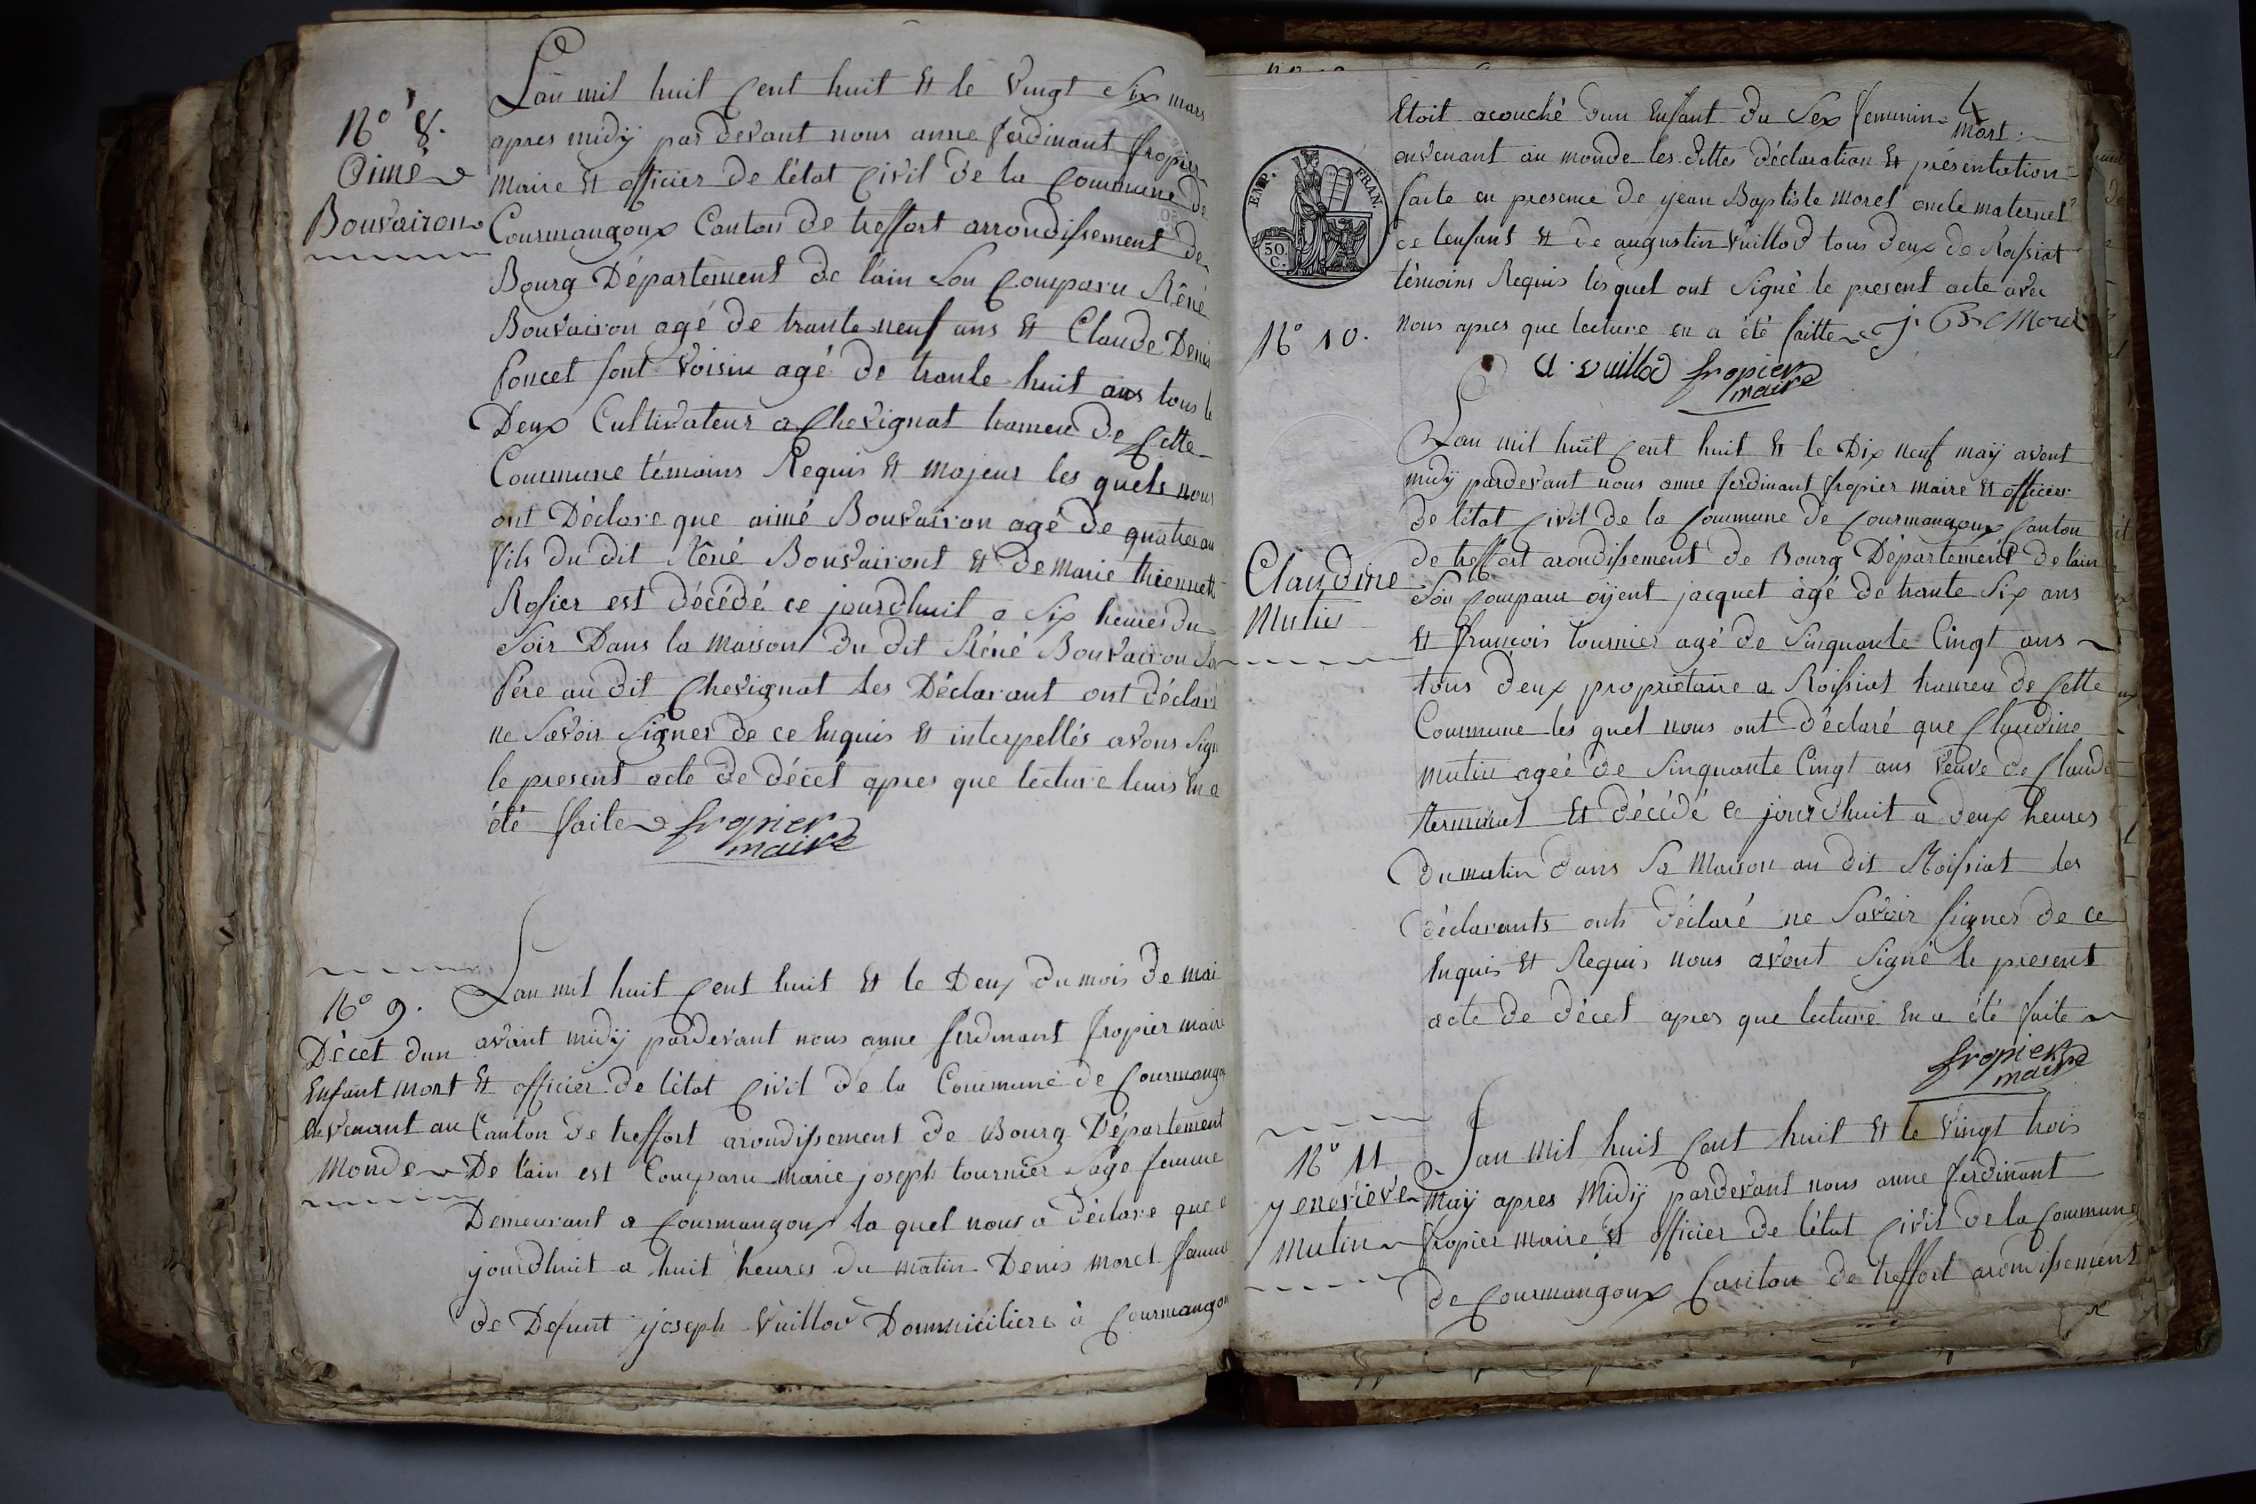 N° 8.
Aimé
Bouvairon
Lan mil huit Cent huit Et le Vingt Six mars
apres midÿ pardevant nous anne ferdinant fropier
Maire Et officier de létat Civil de la Commune de
Courmangoux Canton de treffort arrondissement de
Bourg Département de lain Son Comparu Réné
Bouvairon agé de trante neuf ans Et Claude Denis
foncet font Voisin agé de trante huit ans tous le
Deux Cultivateur a Chevignat hameu de Cette
Commune témoins Requis Et majeur les quels nous
ont Déclare que aimé Bouvairon agé de quatre an
fils du dit Réné Bouvairont Et de marie thiennette
Rosier est décédé ce jourdhuit a Six heures du
Soir Dans la maison du dit Réné Bouvairon Son
Pére au dit Chevignat les Déclarant ont déclaré
ne Savoir Signer de ce Enquis Et interpellés avons Signé
le present acte de décet apres que lecture leurs En a
été faite fropier
maire
N° 9.
Décet dun
Enfant mort
en venant au
Monde
Lan mil huit Cent huit Et le Deux du mois de mai
avant midÿ pardevant nous anne ferdinant fropier maire
Et officier de létat Civil de la Commune de Courmangoux
Canton de treffort arondissement de Bourg Département
De lain est Comparu marie joseph tournier Sage femme
Demeurant a Courmangoux la quel nous a déclare que
jourdhuit a huit heures du matin Denis morel famme
de Defunt joseph Vuillod Dommiciliere à Courmangoux
4
Etoit acouché dun Enfant du Sex feminin mort
en venant au monde les dittes déclaration Et présentation
faite en presence de jean Baptiste Morel oncle maternel
de lenfant Et de augustin Vuillod tous deux de Roissiat
témoins Requis les quel ont Signé le present acte avec
nous apres que lecture en a été faitte J. B. Morel
A. Vuillod fropier
maire
EMP. FRAN.
50 C.
N° 10.
Claudine
Mutin
Lan mil huit Cent huit Et le Dix neuf maÿ avent
midÿ pardevant nous anne ferdinant fropier maire Et officier
de létat Civil de la Commune de Courmangoux Canton
de treffort arondissement de Bourg Département de lain
Son Comparu oÿent jacquet âgé de trante Six ans
Et francois tournier agé de Sinquante Cingt ans
tous deux proprietaire a Roissiat hameu de Cette
Commune les quel nous ont déclaré que Claudine
mutin ageé de Sinquante Cingt ans Veuve de Claude
terminet Et décédé ce jourdhuit a deux heures
du matin dans Sa Maison au dit Roissiat les
déclarants onts déclaré ne Savoir Signer de ce
Enquis Et Requis nous avont Signé le present
acte de décet apres que lecture En a été faite
fropier
maire
N° 11
yenevieve
Mutin
Lan mil huit Cent huit Et le Vingt trois
Maÿ apres Midÿ pardevant nous anne ferdinant
fropier maire Et officier de létat Civil de la Commune
de Courmangoux Canton de treffort arondissement